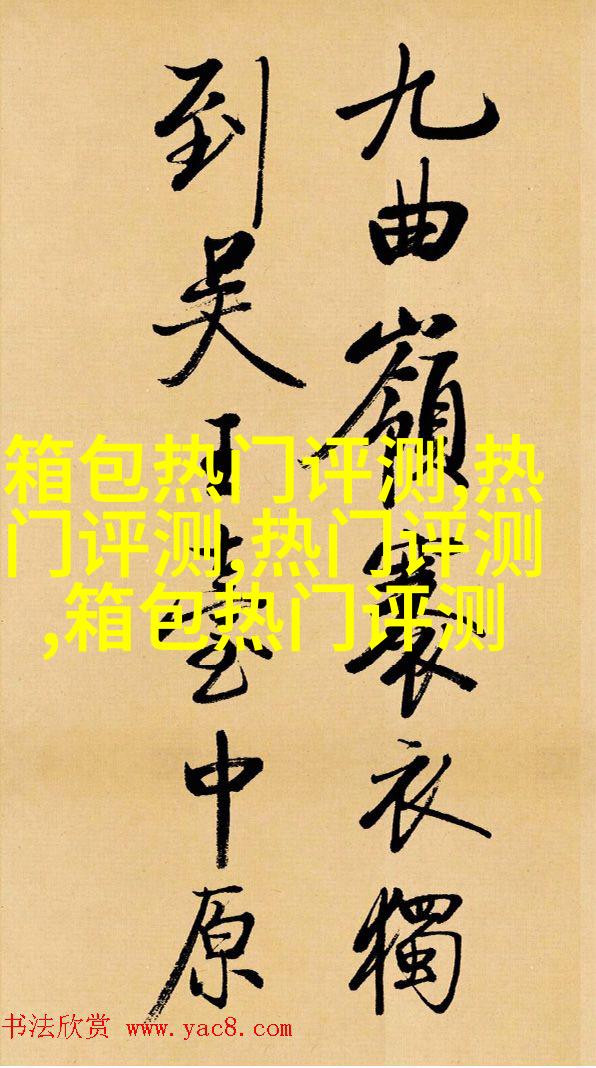 九曲嶺褰衣獨
到吴王臺中原
箱包热门评测,热
门评测,热门评测
,箱包热门评测
书法欣赏 www.yac8.com